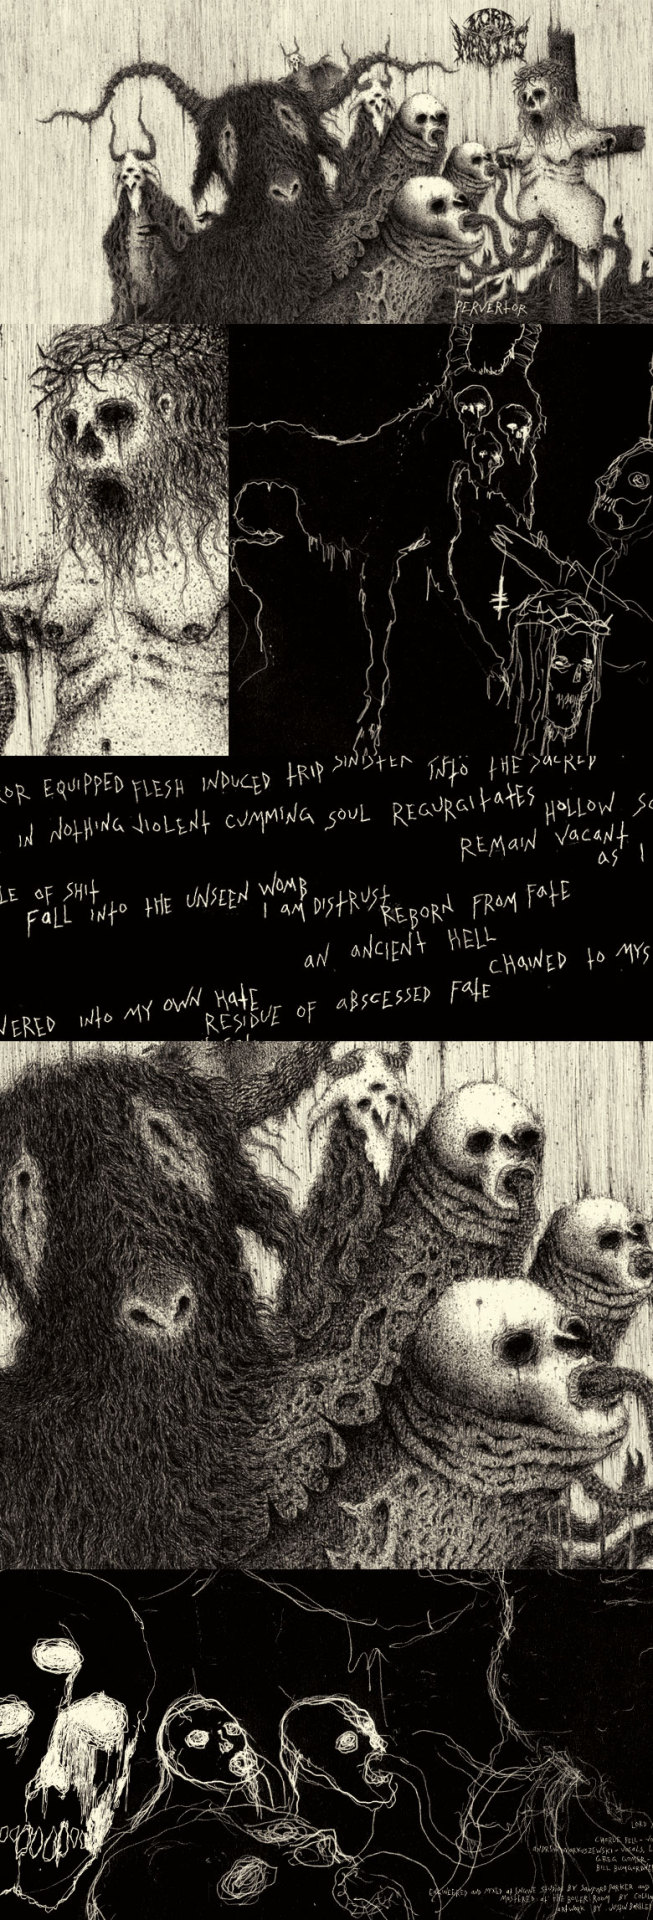 LORD
MANTIS
PERVERTOR
OR EQUIPPED FLESH INDUCED TRIP SINISTER INTO THE SACRED
IN NOTHING VIOLENT CUMMING SOUL REGURGITATES HOLLOW SO
REMAIN VACANT
AS I
LE OF SHIT
FALL INTO THE UNSEEN WOMB
I AM DISTRUST
REBORN FROM FATE
AN ANCIENT HELL
CHAINED TO MYS
VERED INTO MY OWN HATE
RESIDUE OF ABSCESSED FATE
LORD
CHARLIE FELL - VO
ANDREW MARKUSZEWSKI - VOCALS, L
GREG GOMER -
BILL BUMGARDNER
ENGINEERED AND MIXED AT ENGINE STUDIOS BY SANFORD PARKER AND
MASTERED AT THE BOILER ROOM BY COLLIN
ARTWORK BY JUSTIN BARTLETT